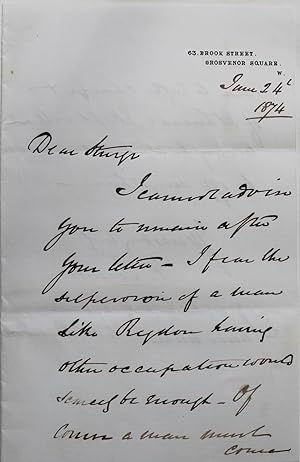 63, BROOK STREET.
GROSVENOR SQUARE.
W.
June 24
1874
Dear Sturge
I cannot advise
you to remain after
your letter – I fear the
supervision of a man
like Rigdon having
other occupation would
scarcely be enough – Of
course a man must
come